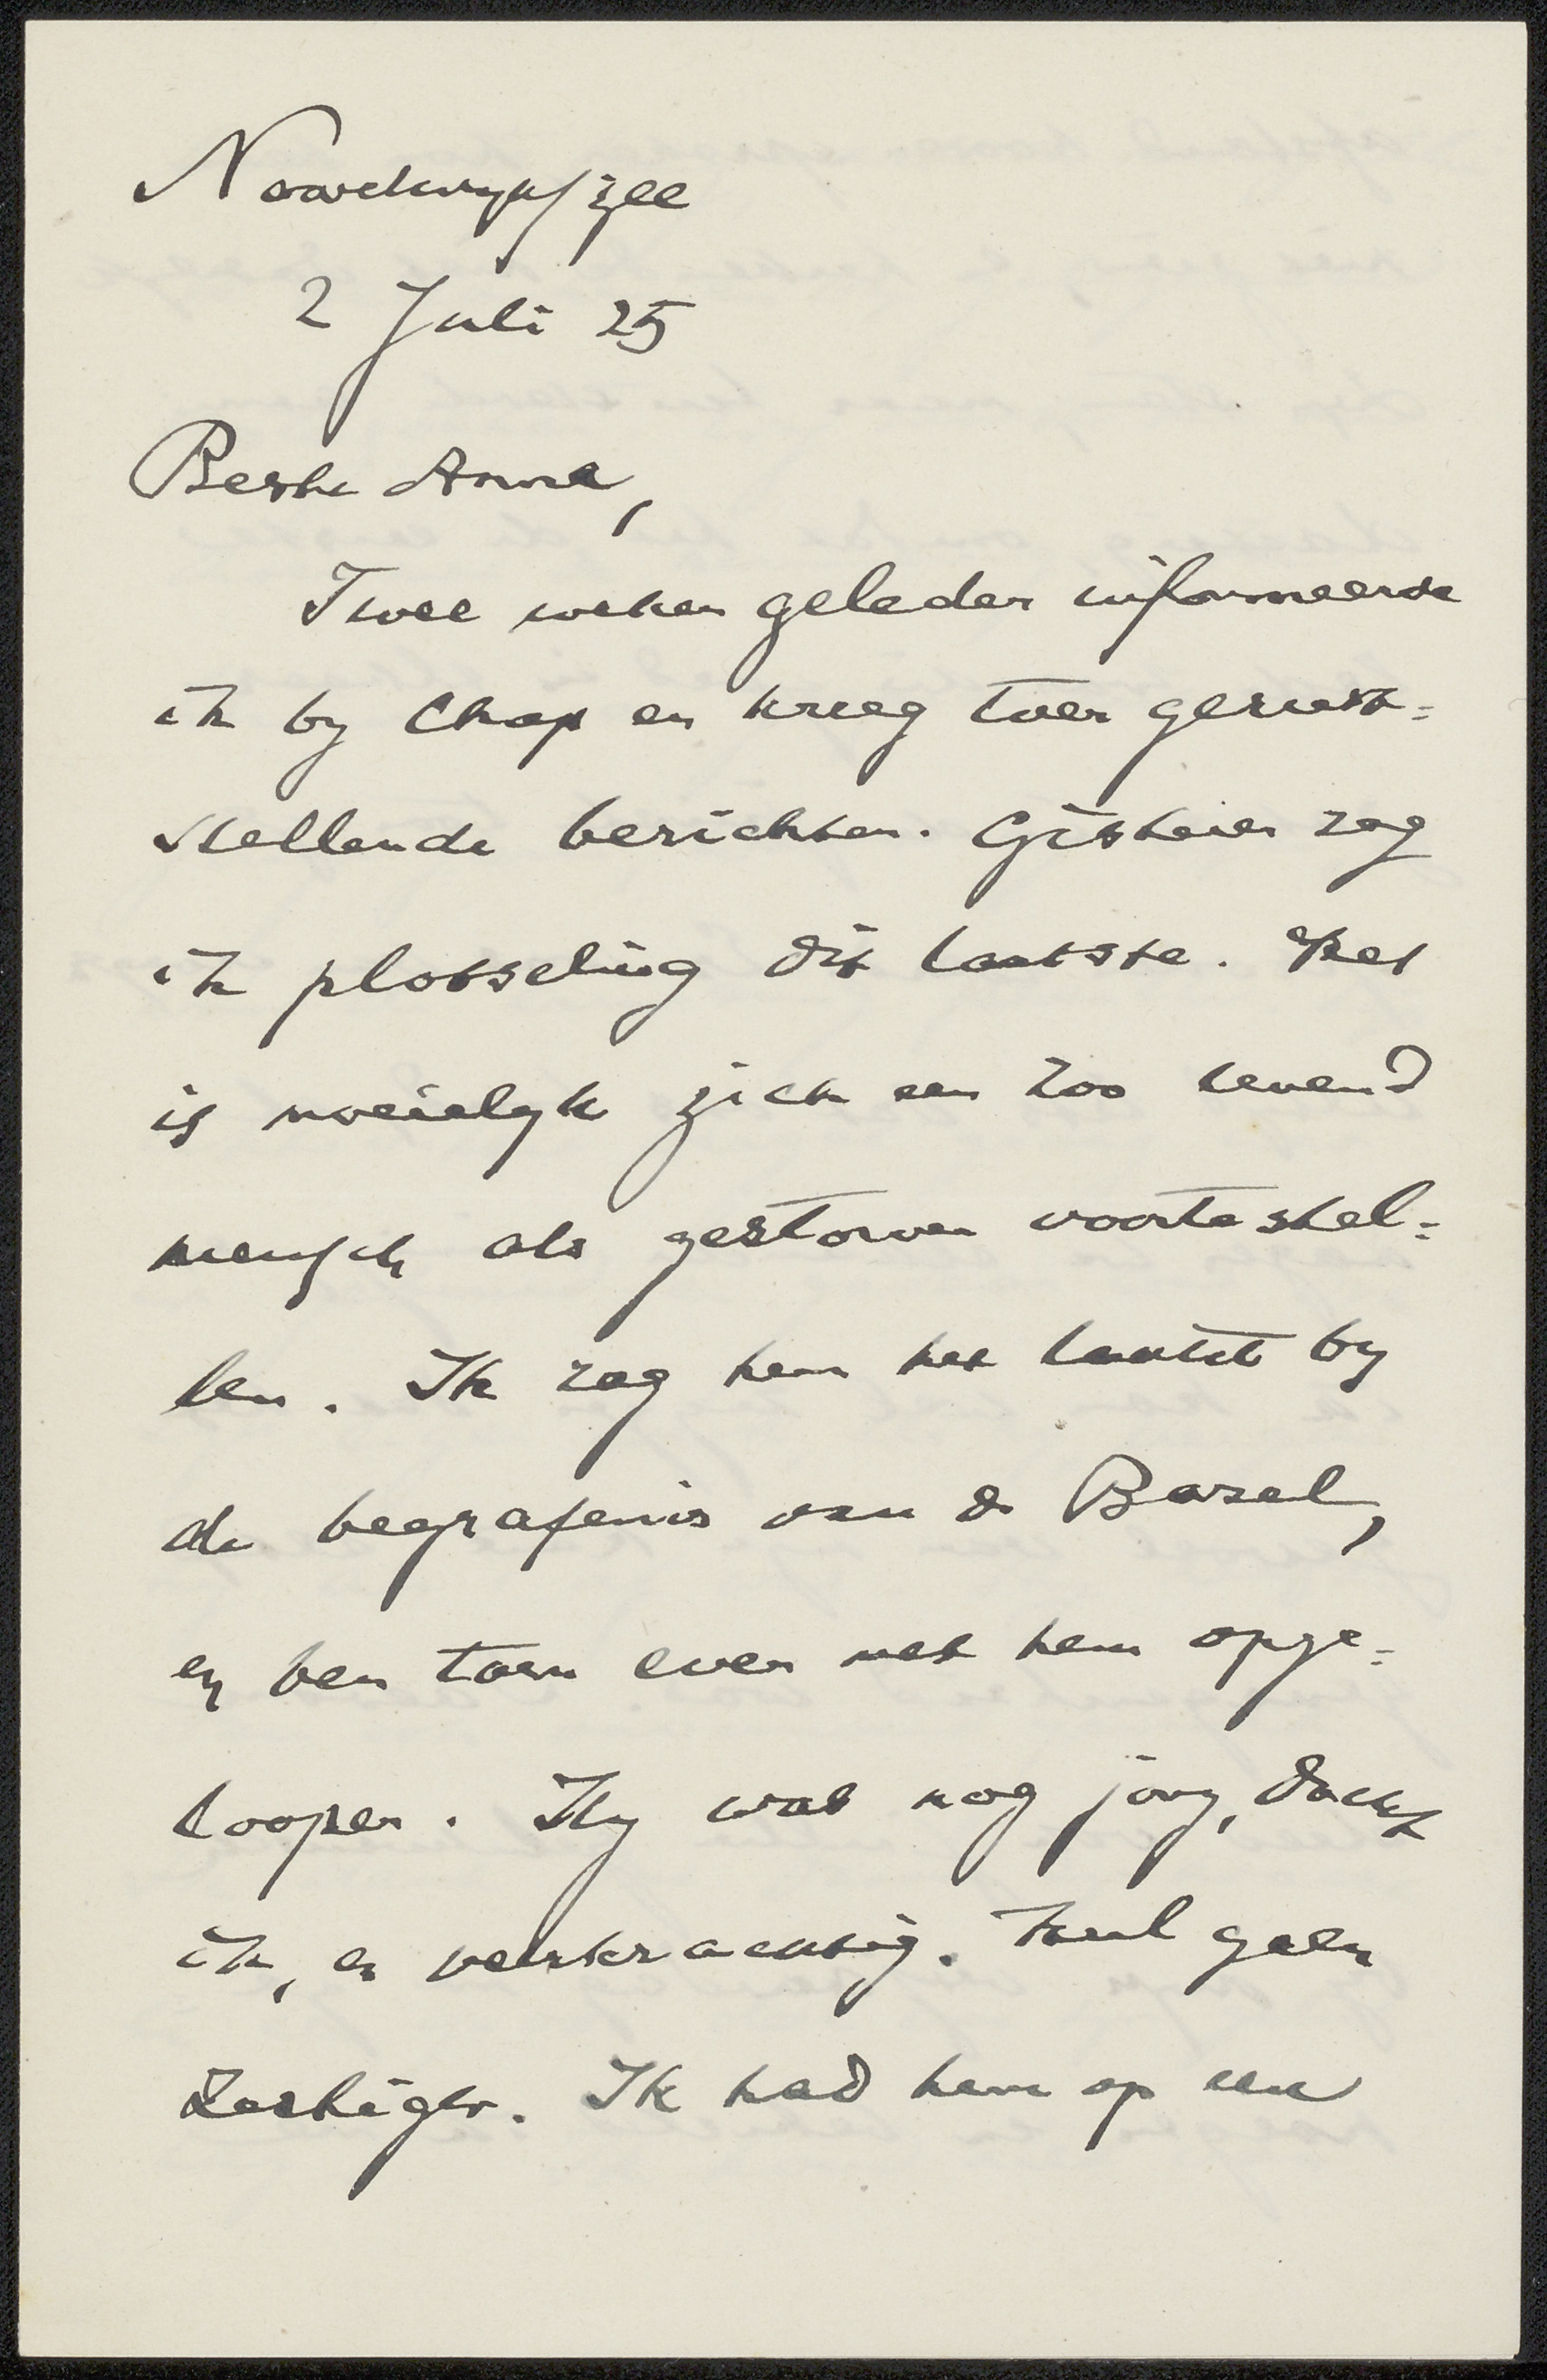 Noordwyk/zee
2 Juli 25
Beste Anna,
Twee weken geleden informeerde
ik by Chap en kreeg toen gerust=
stellende berichten. Gisteren zag
ik plotseling dit laatste. Het
is moeielyk zich een zoo levend
mensch als gestorven voorte stel=
len. Ik zag hem het laatst by
de begrafenis van de Bazel,
en ben toen even met hem opge=
loopen. Hy was nog jong, dacht
ik, en veerkrachtig. Heel geen
Zestiger. Ik had hem op een